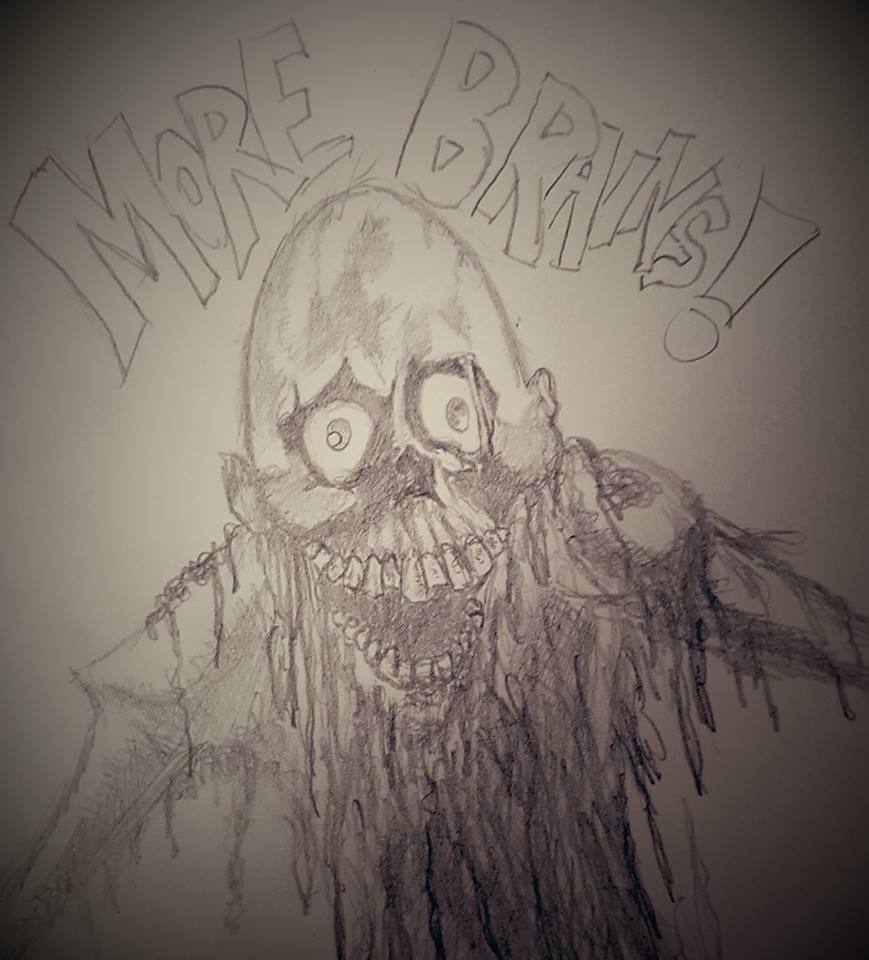 MORE BRAINS!